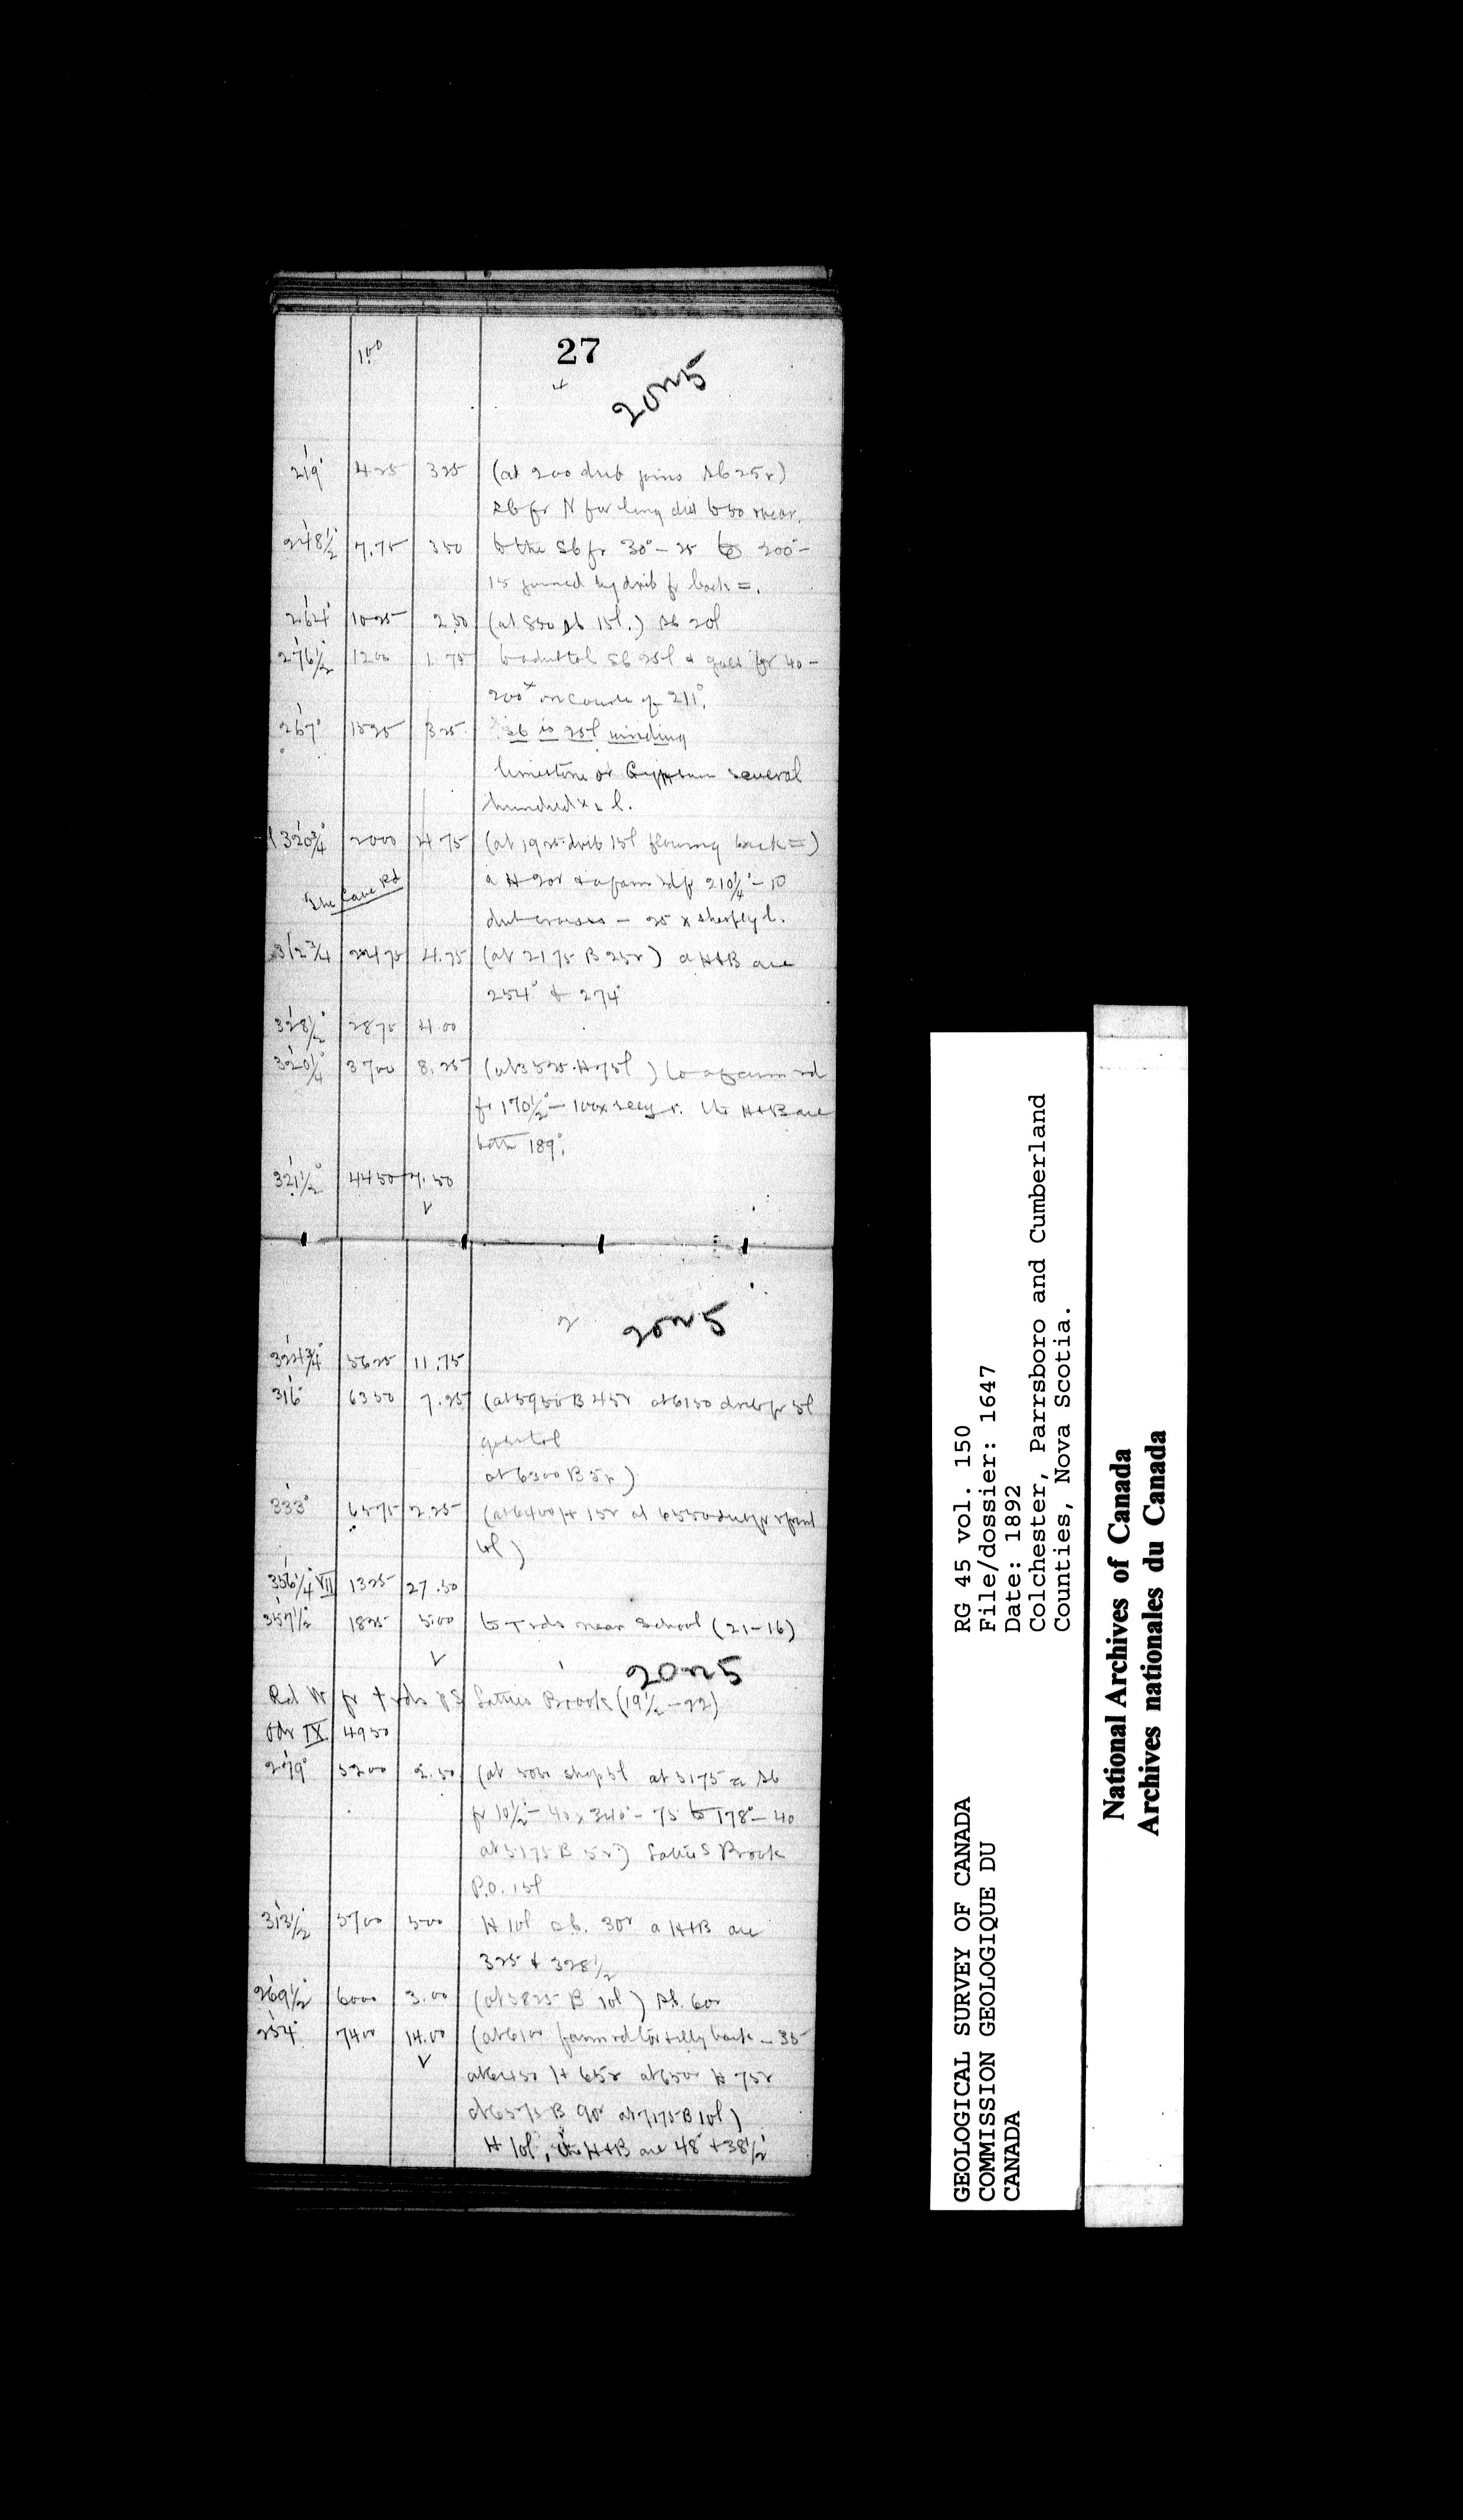 27
100
20 N 5
219° 425 325 (at 200 drib joins sb 25r)
sb fr N for long dist to 50
248½° 7.75 350 to the sb fr 30° – 25 to 200° –
15 joined by drib fr back =.
264° 1025 2.50 (at 850 sb 15l.) sb 20l
276½° 1200 1.75 sb 25l & goes for 40 –
200x on course of 211°.
267° 1525 325 sb is 25l winding
limestone or Gypsum several
hundred x s l.
320¾° 2000 4 75 (at 1925 drib 15l flowing back =)
a H 20r & a farm rd fr 210¼° – 10
– 25 x sharply l.
The Cave Rd
312¾ 2475 4.75 (at 2175 B 25r) a H+B are
254° & 274°
328½° 2875 4.00
320¼° 3700 8.25 (at 3525 H 75l) to a farm rd
fr 170½° – 100x r. the H+B are
both 189°.
321½° 4450 7.50
20 N 5
324¾° 5625 11.75
316° 6350 7.25 (at 5950 B 45r at 6150 drib fr 5l
at 6300 B 5r)
333° 6575 2.25 (at 6400 H 15r at 6550 drib fr
tol)
356¼ VII 1325 27.50
357½° 1825 5.00 to T rds near School (21–16)
20 N 5
Rd W fr T rds Brook (19½–22)
Odr IX 4950
279° 5200 2.50 (at 5050 shop 5l at 5175 a sb
fr 10½° – 40 x 340° – 75 to 178° – 40
at 5175 B 5r) Brook
P.O. 15l
313½° 5700 500 H 10l sb. 30r a H+B are
325 & 328½
269½° 6000 3.00 (at 5825 B 10l) sb. 60r
254° 7400 14.00 (at 6100 farm rd back – 35
at 6450 H 65r at 6500 H 75r
at 6575 B 90r at 7175 B 10l)
H 10l, the H+B are 48° + 38½°
GEOLOGICAL SURVEY OF CANADA
COMMISSION GEOLOGIQUE DU
CANADA
RG 45 vol. 150
File/dossier: 1647
Date: 1892
Colchester, Parrsboro and Cumberland
Counties, Nova Scotia.
National Archives of Canada
Archives nationales du Canada